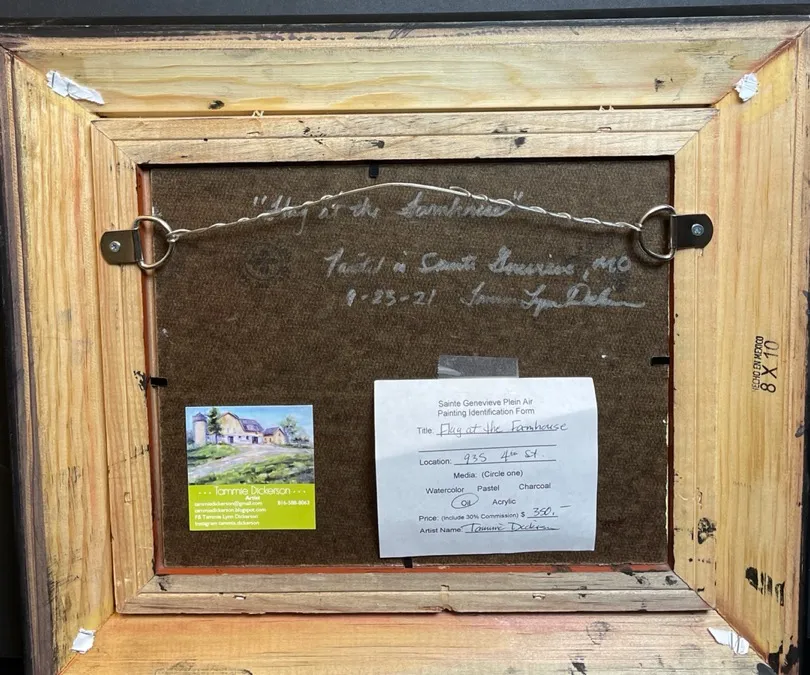 "Flag at the Farmhouse"
Painted in Sainte Genevieve, MO
9-23-21 Tammie Lynn Dickerson
HECHO EN MEXICO
8 X 10
Sainte Genevieve Plein Air
Painting Identification Form
Title: Flag at the Farmhouse
Location: 935 4th St.
Media: (Circle one)
Watercolor Pastel Charcoal
Oil Acrylic
Price: (Include 30% Commission) $ 350.—
Artist Name: Tammie Dickerson
--- Tammie Dickerson ---
Artist
tammieldickerson@gmail.com 816-588-8063
tammiedickerson.blogspot.com
FB Tammie Lynn Dickerson
Instagram tammie.dickerson